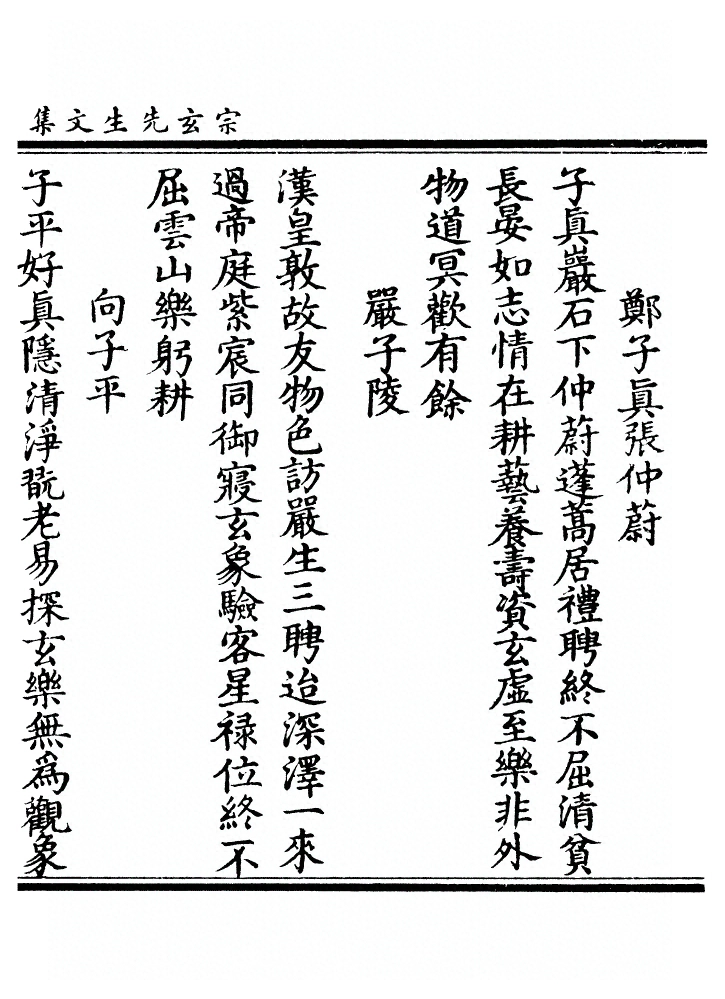 宗玄先生文集
鄭子眞張仲蔚
子眞巖石下仲蔚蓬蒿居禮聘終不屈清貧
長晏如志情在耕藝養壽資玄虛至樂非外
物道冥歡有餘
嚴子陵
漢皇敦故友物色訪嚴生三聘迨深澤一來
過帝庭紫宸同御寢玄象驗客星祿位終不
屈雲山樂躬耕
向子平
子平好眞隱清淨翫老易探玄樂無爲觀象